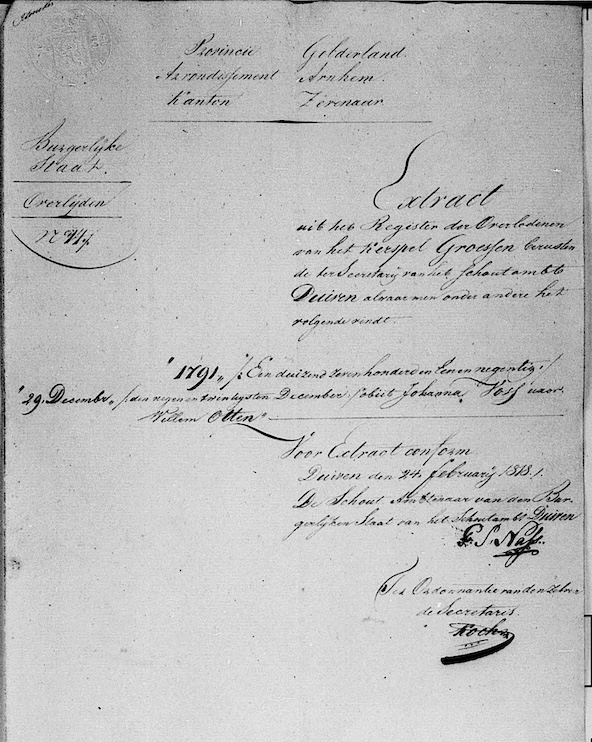 Provincie Gelderland.
Arrondissement Arnhem.
Kanton Zevenaar
Burgerlyke
Staat.
Overlyden
Extract
uit het Register der Overledenen
van het Kerspel Groessen berusten
de ter Secretary van het Schoutambt
Duiven alwaar men onder andere het
volgende vindt.
"1791„ /: Een duizend zevenhonderd en Een en negentig :/
"29. Decembr„ /: den negen en twintigsten December :/ obiit Johanna Voss uxor
Willem Otten"
Voor Extract conform
Duiven den 24 February 1818.
De Schout Ambtenaar van den Bur-
gerlyken Staat van het Schoutambt Duiven
Nass.
Ter Ordonnantie van denzelven
de Secretaris.
Koch